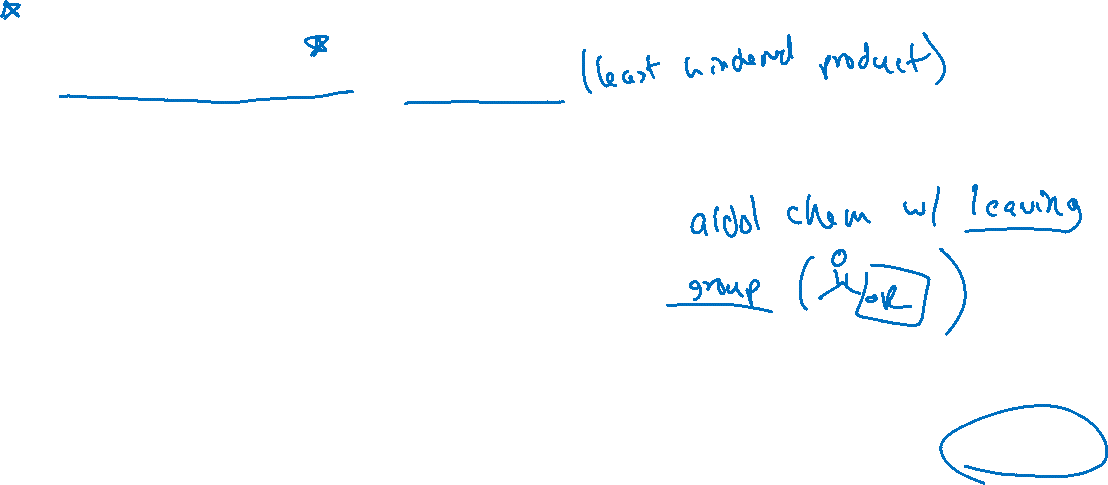 (least hindered product)
aldol chem w/ leaving
group ( O OR )